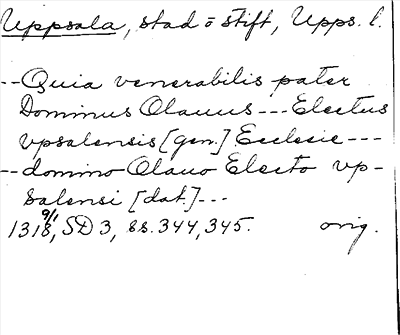 Uppsala, stad o stift, Upps. l.
--Quia venerabilis pater
Dominus Olauus --- Electus
vpsalensis [gen.] Ecclesie ---
-- domino Olauo Electo vp-
salensi [dat.] ---
1318 9/1, SD 3, ss. 344, 345. orig.